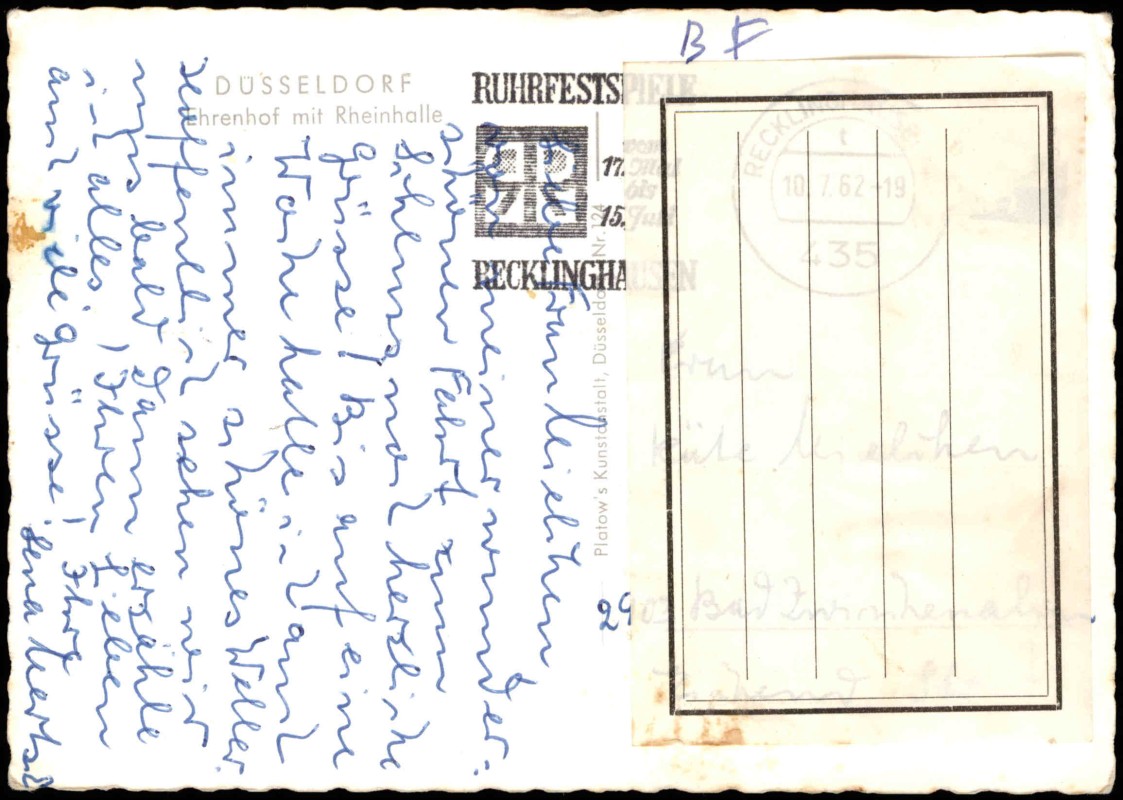 B F
DÜSSELDORF
Ehrenhof mit Rheinhalle
RUHRFESTSPIELE
vom
17. Mai
bis
15. Juli
RECKLINGHAUSEN
RECKLINGHAUSEN
10.7.62-19
435
Platow's Kunstanstalt, Düsseldorf Nr. 124
Liebe Frau Mielchen
von meiner wunder-
schönen Fahrt zum
Schluss noch herzliche
Grüsse! Bis auf eine
Woche hatte ich auch
immer schönes Wetter.
Hoffentlich sehen wir
uns bald, dann erzähle
ich alles, Ihnen
und viele Grüsse! Ihre
Lena
Frau
Käte Mielchen
2903 Bad Zwischenahn